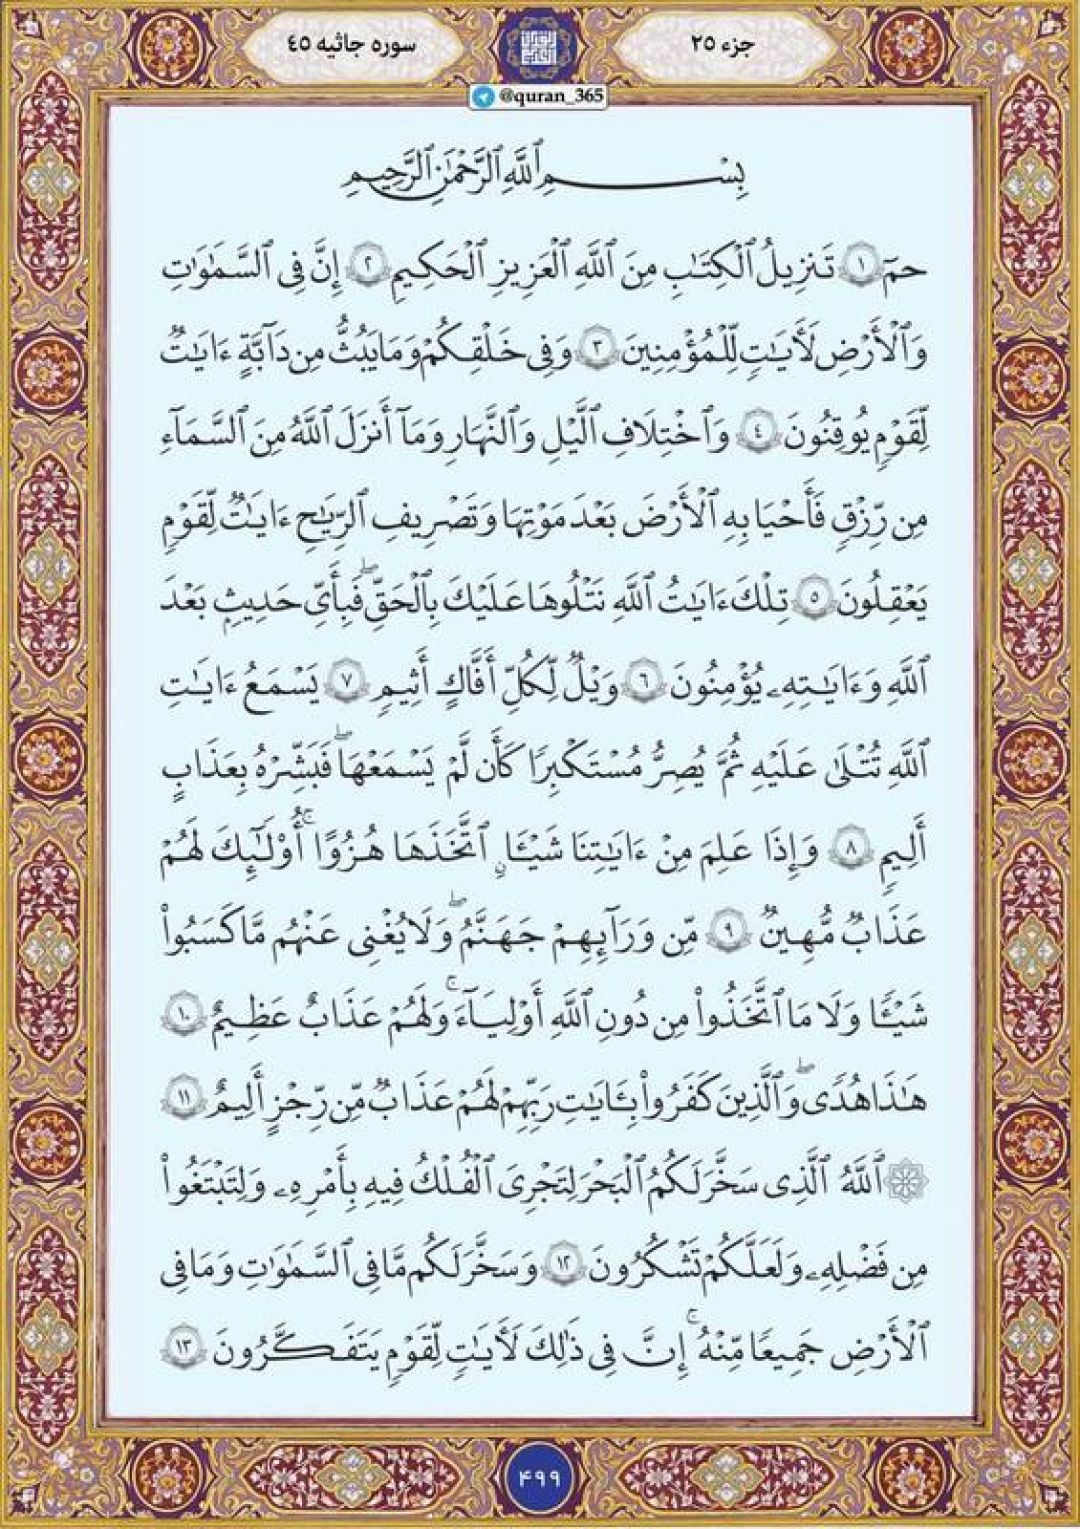 جزء ۲۵
سوره جاثیه ۴۵
@quran_365
بِسْمِ ٱللَّهِ ٱلرَّحْمَٰنِ ٱلرَّحِيمِ
حمٓ ۝١ تَنزِيلُ ٱلْكِتَٰبِ مِنَ ٱللَّهِ ٱلْعَزِيزِ ٱلْحَكِيمِ ۝٢ إِنَّ فِى ٱلسَّمَٰوَٰتِ
وَٱلْأَرْضِ لَأٓيَٰتٍ لِّلْمُؤْمِنِينَ ۝٣ وَفِى خَلْقِكُمْ وَمَا يَبُثُّ مِن دَآبَّةٍ ءَايَٰتٌ
لِّقَوْمٍ يُوقِنُونَ ۝٤ وَٱخْتِلَٰفِ ٱلَّيْلِ وَٱلنَّهَارِ وَمَآ أَنزَلَ ٱللَّهُ مِنَ ٱلسَّمَآءِ
مِن رِّزْقٍ فَأَحْيَا بِهِ ٱلْأَرْضَ بَعْدَ مَوْتِهَا وَتَصْرِيفِ ٱلرِّيَٰحِ ءَايَٰتٌ لِّقَوْمٍ
يَعْقِلُونَ ۝٥ تِلْكَ ءَايَٰتُ ٱللَّهِ نَتْلُوهَا عَلَيْكَ بِٱلْحَقِّ ۖ فَبِأَىِّ حَدِيثٍۭ بَعْدَ
ٱللَّهِ وَءَايَٰتِهِۦ يُؤْمِنُونَ ۝٦ وَيْلٌ لِّكُلِّ أَفَّاكٍ أَثِيمٍ ۝٧ يَسْمَعُ ءَايَٰتِ
ٱللَّهِ تُتْلَىٰ عَلَيْهِ ثُمَّ يُصِرُّ مُسْتَكْبِرًا كَأَن لَّمْ يَسْمَعْهَا ۖ فَبَشِّرْهُ بِعَذَابٍ
أَلِيمٍ ۝٨ وَإِذَا عَلِمَ مِنْ ءَايَٰتِنَا شَيْـًٔا ٱتَّخَذَهَا هُزُوًا ۚ أُو۟لَٰٓئِكَ لَهُمْ
عَذَابٌ مُّهِينٌ ۝٩ مِّن وَرَآئِهِمْ جَهَنَّمُ ۖ وَلَا يُغْنِى عَنْهُم مَّا كَسَبُوا۟
شَيْـًٔا وَلَا مَا ٱتَّخَذُوا۟ مِن دُونِ ٱللَّهِ أَوْلِيَآءَ ۖ وَلَهُمْ عَذَابٌ عَظِيمٌ ۝١٠
هَٰذَا هُدًى ۖ وَٱلَّذِينَ كَفَرُوا۟ بِـَٔايَٰتِ رَبِّهِمْ لَهُمْ عَذَابٌ مِّن رِّجْزٍ أَلِيمٌ ۝١١
۞ ٱللَّهُ ٱلَّذِى سَخَّرَ لَكُمُ ٱلْبَحْرَ لِتَجْرِىَ ٱلْفُلْكُ فِيهِ بِأَمْرِهِۦ وَلِتَبْتَغُوا۟
مِن فَضْلِهِۦ وَلَعَلَّكُمْ تَشْكُرُونَ ۝١٢ وَسَخَّرَ لَكُم مَّا فِى ٱلسَّمَٰوَٰتِ وَمَا فِى
ٱلْأَرْضِ جَمِيعًا مِّنْهُ ۚ إِنَّ فِى ذَٰلِكَ لَأٓيَٰتٍ لِّقَوْمٍ يَتَفَكَّرُونَ ۝١٣
۴۹۹